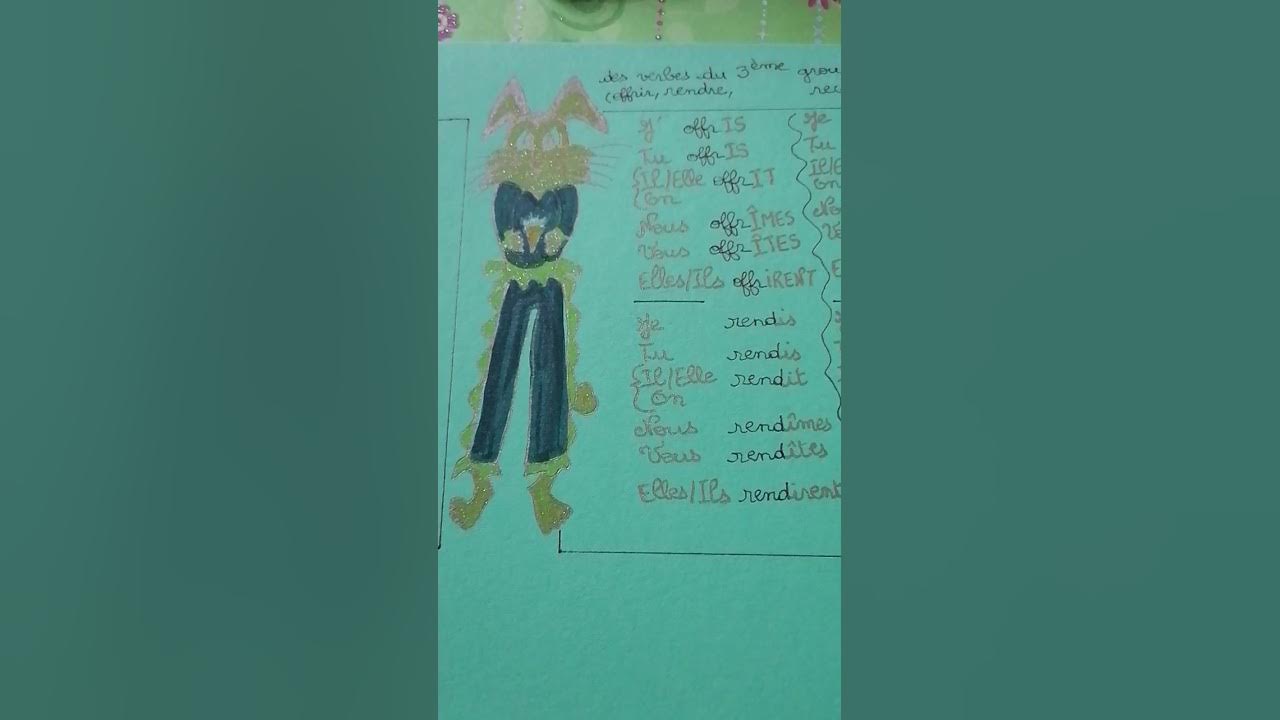 des verbes du 3ème grou
(offrir, rendre, rec
J' offrIS
Tu offrIS
{Il/Elle offrIT
On
Nous offrÎMES
Vous offrÎTES
Elles/Ils offrIRENT
Je rendis
Tu rendis
{Il/Elle rendit
On
Nous rendîmes
Vous rendîtes
Elles/Ils rendirent
Je
Tu
Il/E
On
No
Vo
E